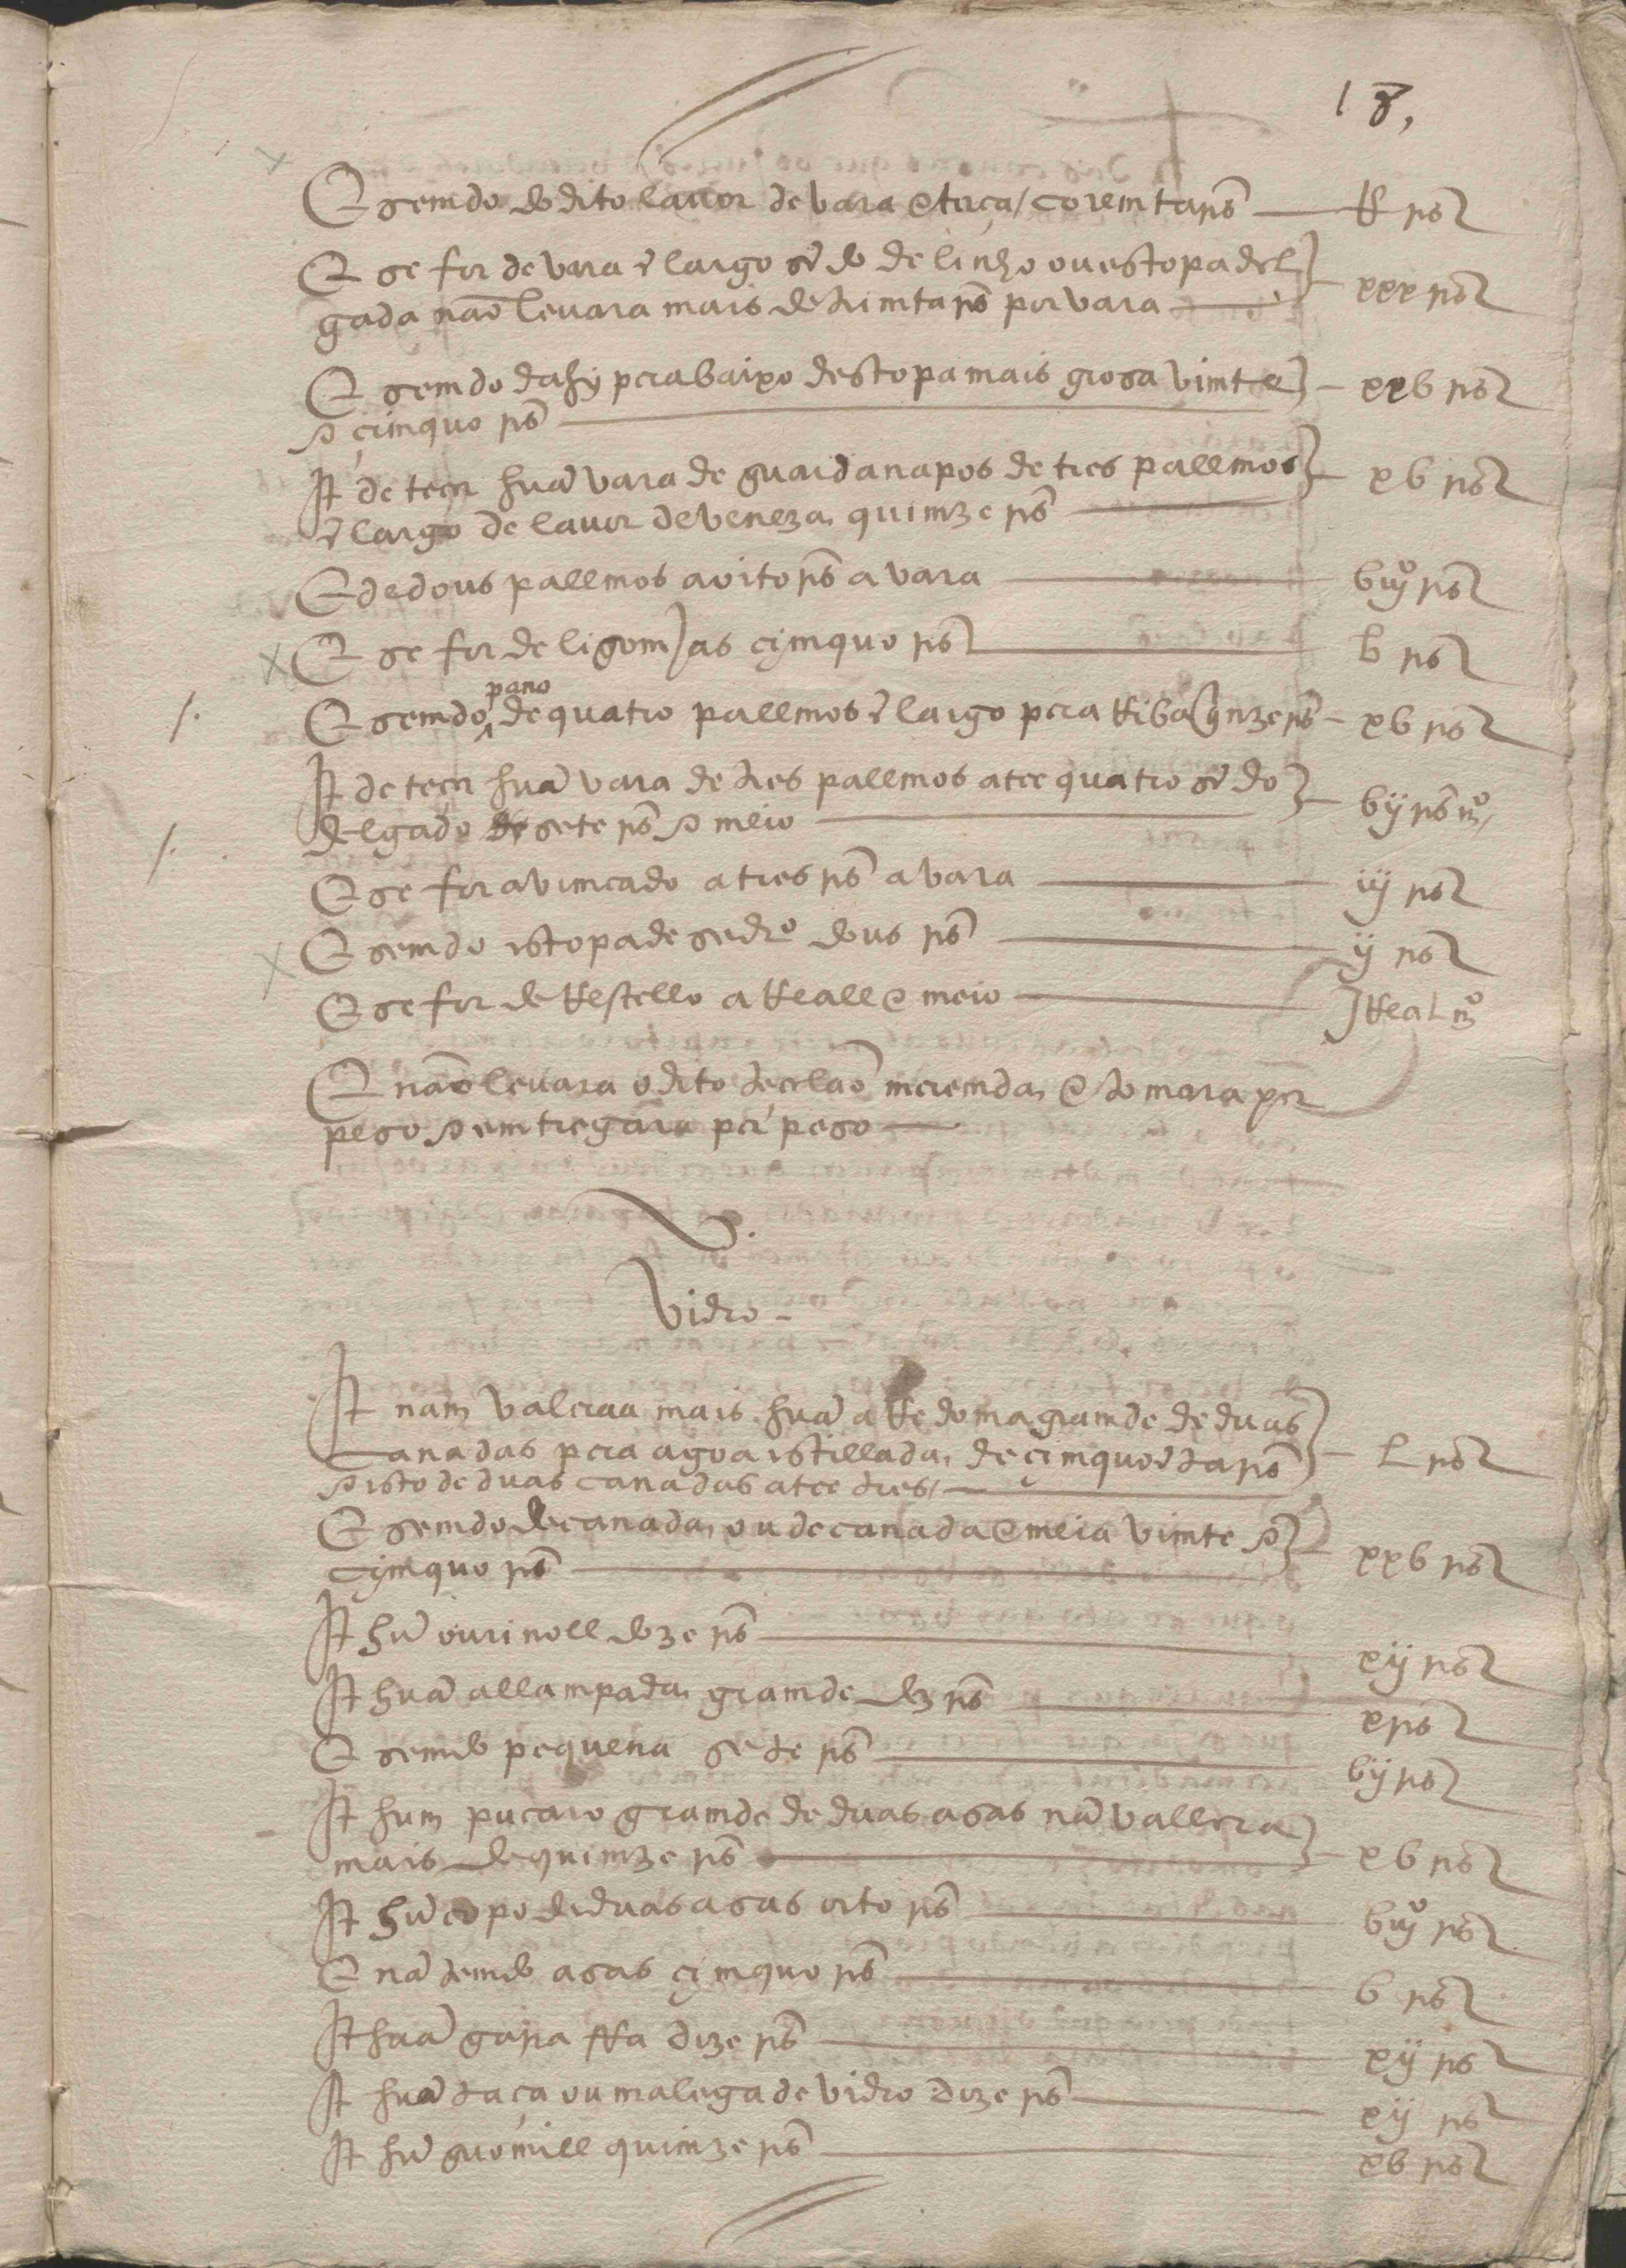 18,
E semdo do dito lauor de vara e terça / coremta rs — R rs
E se for de vara ẽ largo sẽdo de linho ou estopa del
gada não leuara mais de trimta rs por vara — xxx rs
E semdo dahy pera baixo destopa mais grosa vimte
e cimquo rs — xxb rs
It de teçer huã vara de guardanapos de tres pallmos
ẽ largo de lauor de veneza, quimze rs — xb rs
E de dous pallmos a oito rs a vara — biijº rs
E se for de ligomjas cimquo rs — b rs
pano
E semdo de quatro pallmos ẽ largo pera Riba qnze rs — xb rs
It de teçer huã vara de tres pallmos atee quatro sẽdo
delgado de sete rs e meio — bij rs mº
E se for avimcado a tres rs a vara — iij rs
E semdo istopa de sedrº dous rs — ij rs
E se for de Restello a Reall e meio — j Real mº
E não leuara o dito tecelaõ meremda, e tomara per
peso e emtregara per peso —
V.
Vidro –
It nam valeraa mais huã aRedoma gramde de duas
canadas pera agoa istillada, de cimquoẽta rs — L rs
e isto de duas canadas atee tres / —
E semdo de canada, ou de canada e meia vimte e
cimquo rs — xxb rs
It hũ ourinoll doze rs — xij rs
It huã allampada, gramde dez rs — x rs
E semdo pequena sete rs — bij rs
It hum pucaro gramde de duas asas nã vallera
mais de quimze rs — xb rs
It hũ copo de duas asas oito rs — biijº rs
E nã temdo asas cimquo rs — b rs
It huã garraffa doze rs — xij rs
It huã taça ou malega de vidro doze rs — xij rs
It hũ guomill quimze rs — xb rs